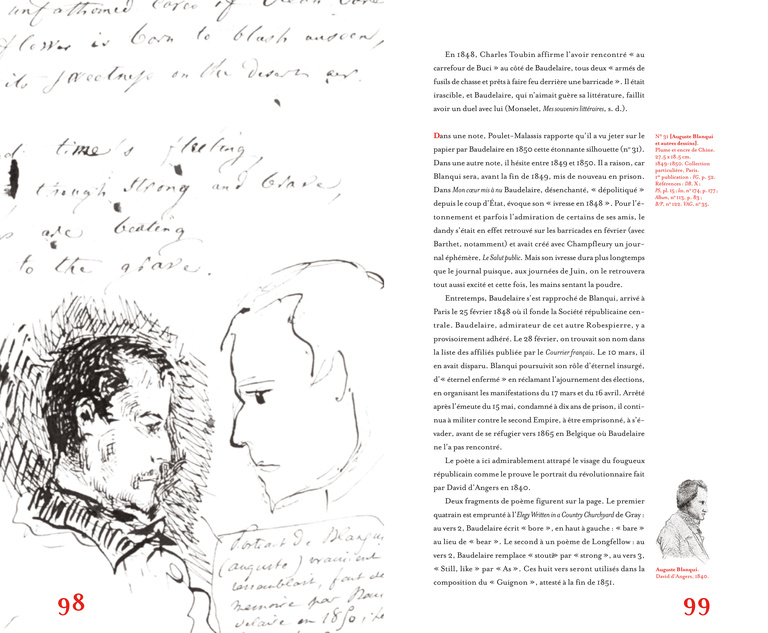 unfathomed caves of
flower is born to blush unseen,
its sweetness on the desert air.
time is fleeting,
though strong and brave,
are beating
to the grave.
Portrait de Blanqui
(auguste) vraiment
ressemblant, fait de
mémoire par Bau
delaire en 1850,
98
En 1848, Charles Toubin affirme l'avoir rencontré « au
carrefour de Buci » au côté de Baudelaire, tous deux « armés de
fusils de chasse et prêts à faire feu derrière une barricade ». Il était
irascible, et Baudelaire, qui n'aimait guère sa littérature, faillit
avoir un duel avec lui (Monselet, Mes souvenirs littéraires, s. d.).
Dans une note, Poulet-Malassis rapporte qu'il a vu jeter sur le
papier par Baudelaire en 1850 cette étonnante silhouette (n° 31).
Dans une autre note, il hésite entre 1849 et 1850. Il a raison, car
Blanqui sera, avant la fin de 1849, mis de nouveau en prison.
Dans Mon cœur mis à nu Baudelaire, désenchanté, « dépolitiqué »
depuis le coup d'État, évoque son « ivresse en 1848 ». Pour l'é-
tonnement et parfois l'admiration de certains de ses amis, le
dandy s'était en effet retrouvé sur les barricades en février (avec
Barthet, notamment) et avait créé avec Champfleury un jour-
nal éphémère, Le Salut public. Mais son ivresse dura plus longtemps
que le journal puisque, aux journées de Juin, on le retrouvera
tout aussi excité et cette fois, les mains sentant la poudre.
Entretemps, Baudelaire s'est rapproché de Blanqui, arrivé à
Paris le 25 février 1848 où il fonde la Société républicaine cen-
trale. Baudelaire, admirateur de cet autre Robespierre, y a
provisoirement adhéré. Le 28 février, on trouvait son nom dans
la liste des affiliés publiée par le Courrier français. Le 10 mars, il
en avait disparu. Blanqui poursuivit son rôle d'éternel insurgé,
d'« éternel enfermé » en réclamant l'ajournement des élections,
en organisant les manifestations du 17 mars et du 16 avril. Arrêté
après l'émeute du 15 mai, condamné à dix ans de prison, il conti-
nua à militer contre le second Empire, à être emprisonné, à s'é-
vader, avant de se réfugier vers 1865 en Belgique où Baudelaire
ne l'a pas rencontré.
Le poète a ici admirablement attrapé le visage du fougueux
républicain comme le prouve le portrait du révolutionnaire fait
par David d'Angers en 1840.
Deux fragments de poème figurent sur la page. Le premier
quatrain est emprunté à l'Elegy Written in a Country Churchyard de Gray :
au vers 2, Baudelaire écrit « bore », en haut à gauche : « bare »
au lieu de « bear ». Le second à un poème de Longfellow : au
vers 2, Baudelaire remplace « stout» par « strong », au vers 3,
« Still, like » par « As ». Ces huit vers seront utilisés dans la
composition du « Guignon », attesté à la fin de 1851.
N° 31 [Auguste Blanqui
et autres dessins].
Plume et encre de Chine.
27,5 x 18,5 cm.
1849-1850. Collection
particulière, Paris.
1re publication : FG, p. 52.
Références : DB, X ;
PS, pl. 15 ; Im, n° 174, p. 177 ;
Album, n° 115, p. 83 ;
B/P, n° 122. VAG, n° 35.
Auguste Blanqui.
David d'Angers, 1840.
99